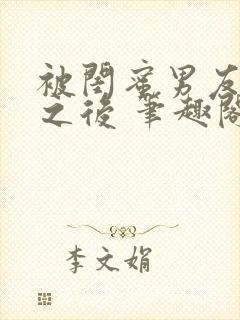 被閨蜜男友
之後 筆趣閣
李文娟